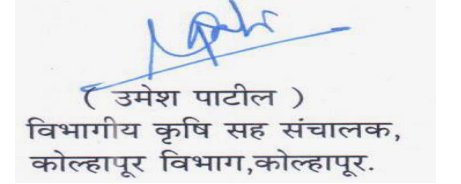 ( उमेश पाटील )
विभागीय कृषि सह संचालक,
कोल्हापूर विभाग,कोल्हापूर.